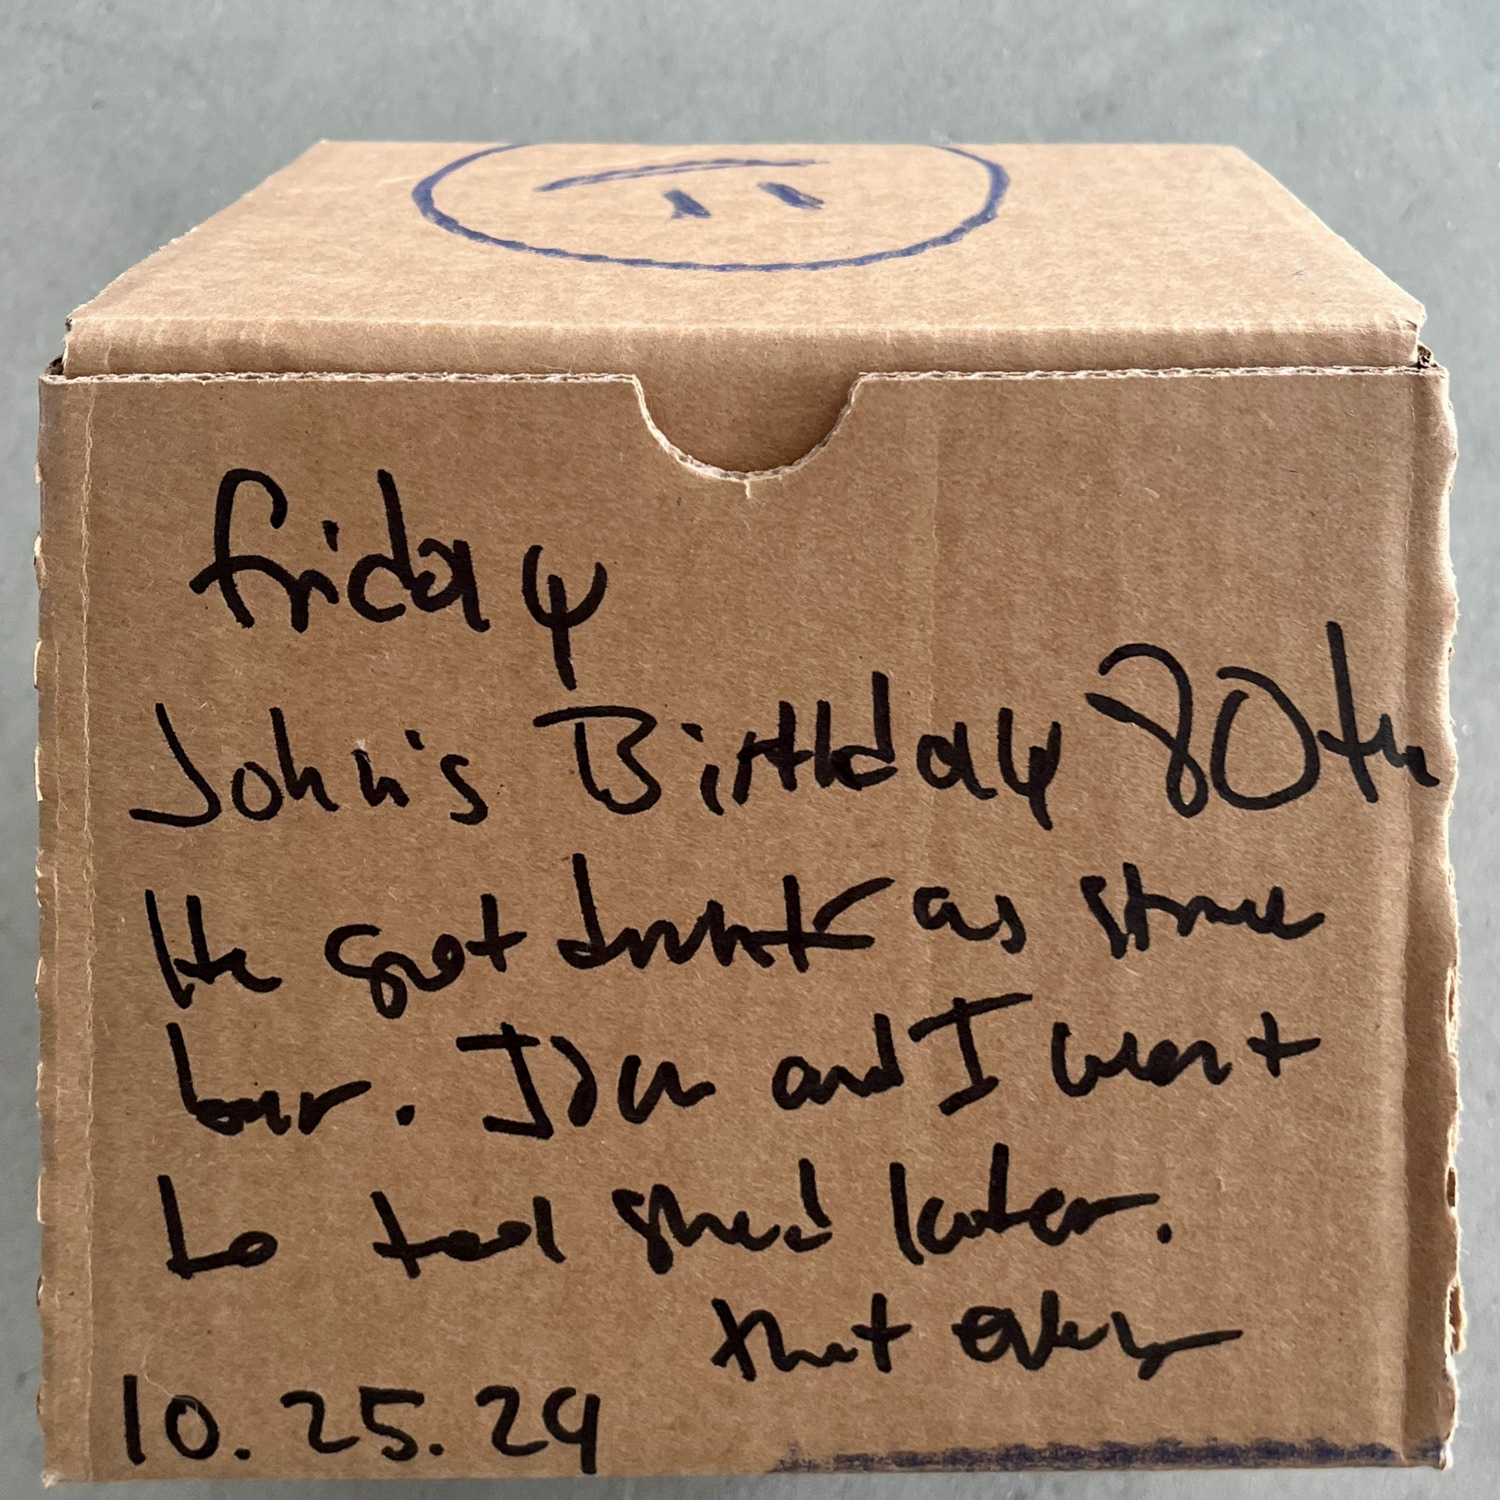 friday
John's Birthday 80th
He got drunk as
bar. Joan and I went
to tool shed later.
that
10.25.24